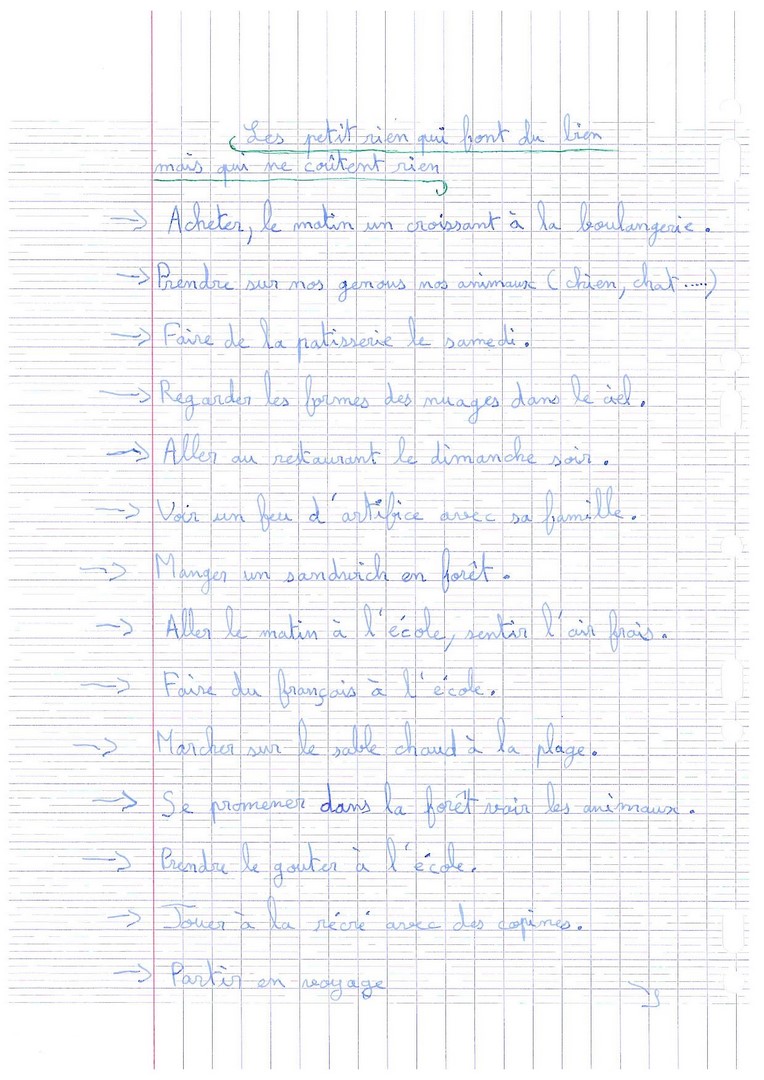 Les petit rien qui font du bien
mais qui ne coûtent rien
→ Acheter, le matin un croissant à la boulangerie.
→ Prendre sur nos genous nos animaux (chien, chat.....)
→ Faire de la patisserie le samedi.
→ Regarder les formes des nuages dans le ciel.
→ Aller au restaurant le dimanche soir.
→ Voir un feu d'artifice avec sa famille.
→ Manger un sandwich en forêt.
→ Aller le matin à l'école, sentir l'air frais.
→ Faire du français à l'école.
→ Marcher sur le sable chaud à la plage.
→ Se promener dans la forêt voir les animaux.
→ Prendre le gouter à l'école.
→ Jouer à la récré avec des copines.
→ Partir en voyage